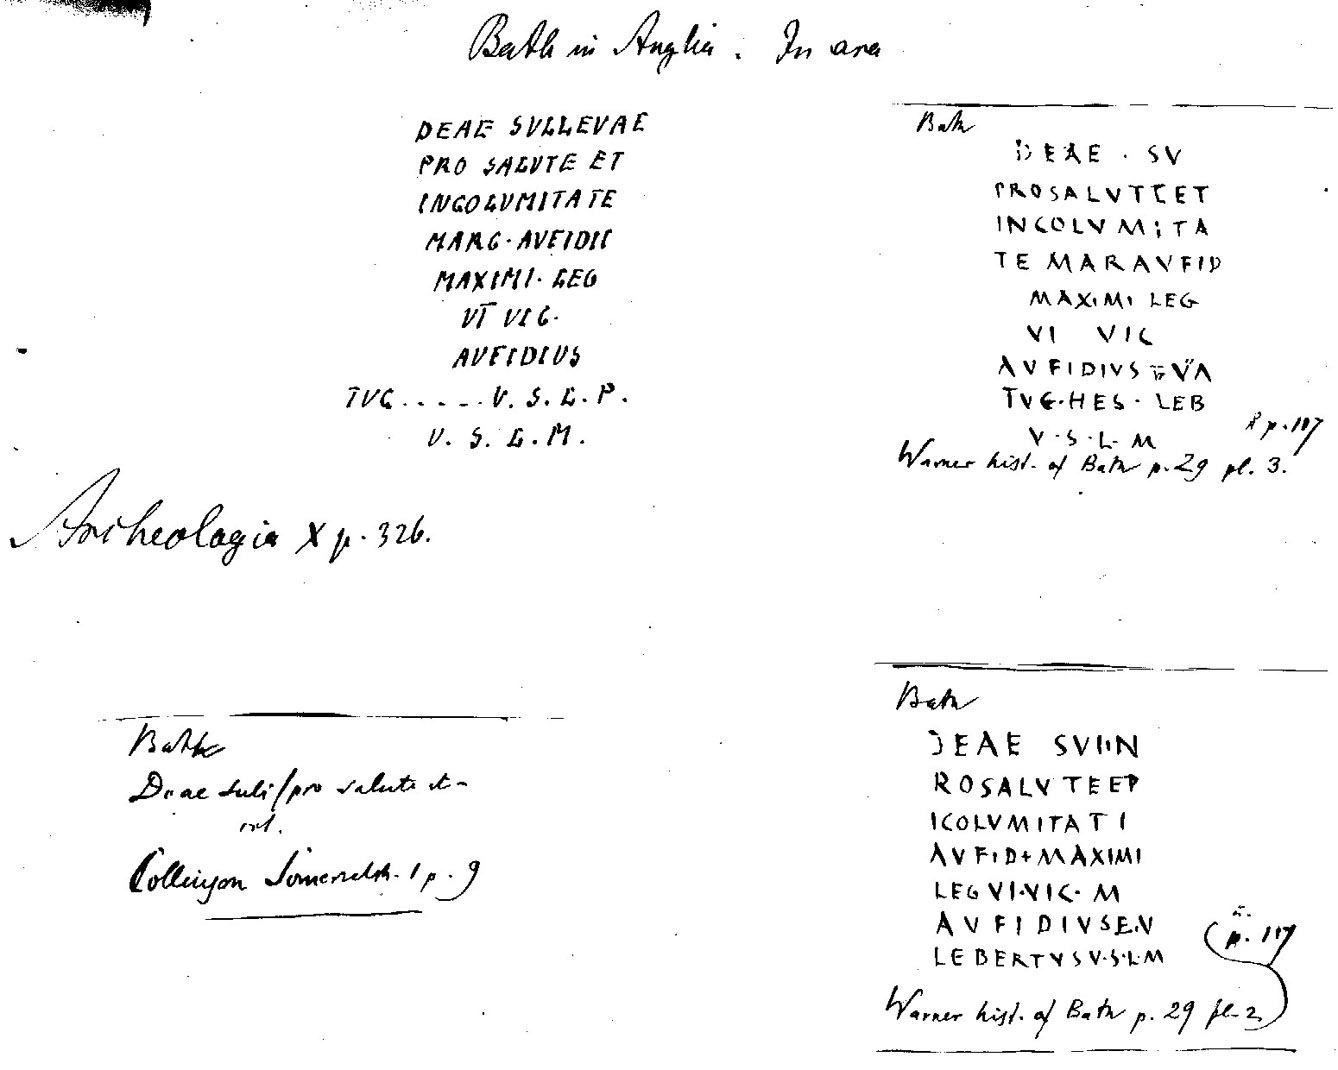 Bath in Anglia. In ara
DEAE SULLEVAE
PRO SALUTE ET
INCOLUMITATE
MARC·AUFIDII
MAXIMI·LEG
VI VIC·
AUFIDIUS
TUC.....V.S.L.P.
V.S.L.M.
Archeologia X p. 326.
Bath
DEAE · SV
PROSALVTEET
INCOLVMITA
TE MARAVFID
MAXIMI LEG
VI VIC
AVFIDIVS
TVC·HES·LEB
V·S·L·M
p. 117
Warner hist. of Bath p. 29 pl. 3.
Bath
Deae Suli/pro salute et
Collinson Somersetsh. 1 p. 9
Bath
DEAE SVIIN
ROSALVTEEP
ICOLVMITATI
AVFID+MAXIMI
LEGVI·VIC·M
AVFIDIVSEV
LEBERTVSV·S·L·M
p. 117
Warner hist. of Bath p. 29 pl. 2